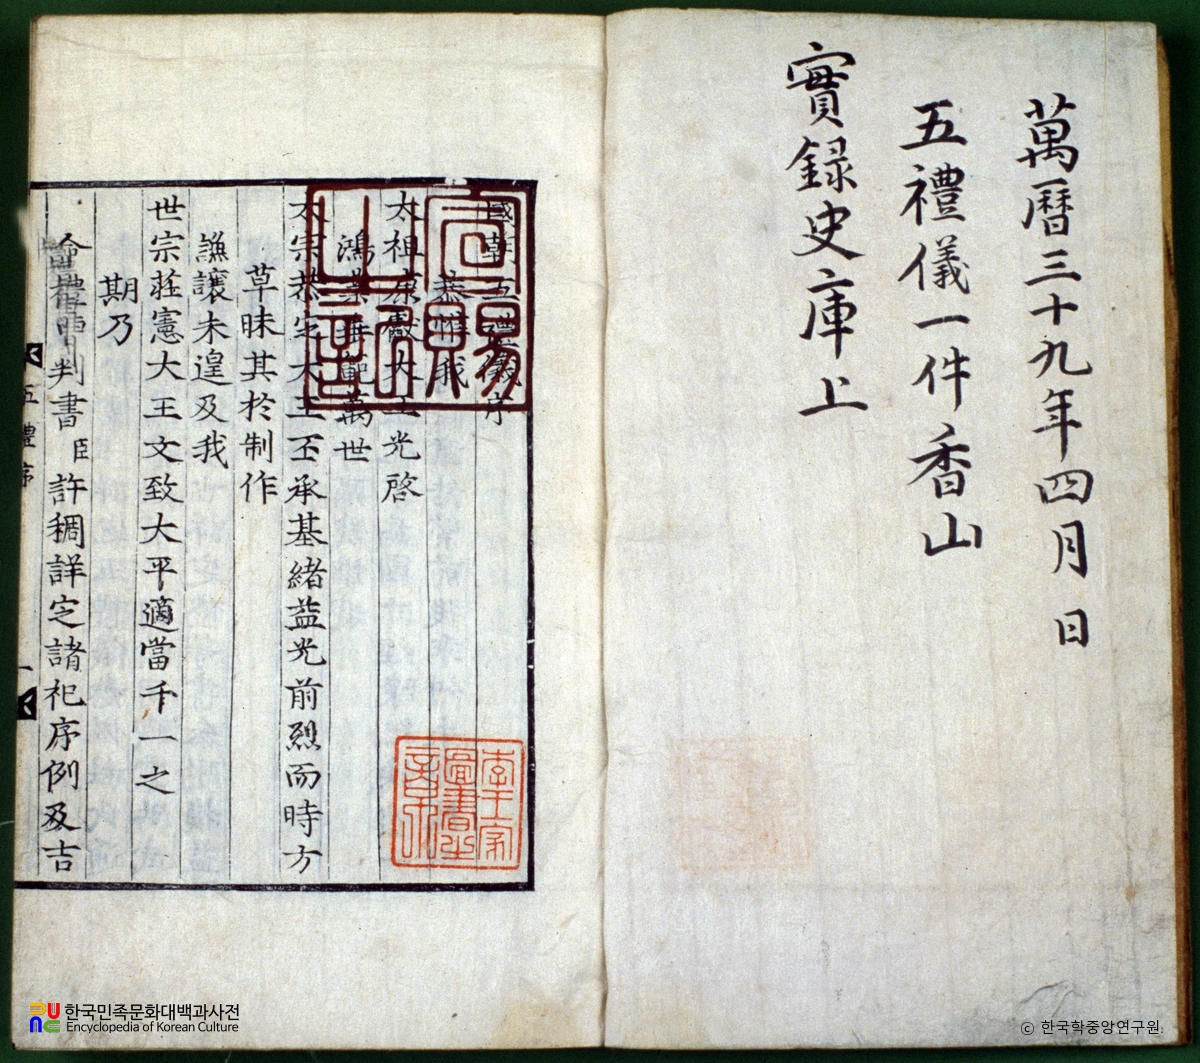 萬曆三十九年四月 日
五禮儀一件香山
實録史庫上
國朝五禮儀序
恭惟我
太祖康獻大王光啓
鴻業垂範萬世
太宗恭定大王丕承基緖益光前烈而時方
草昧其於制作
謙讓未遑及我
世宗莊憲大王文致大平適當千一之
期乃
命禮曹判書臣許稠詳定諸祀序例及吉
五禮序
一
宣賜之記
李王家圖書之章
한국민족문화대백과사전
Encyclopedia of Korean Culture
© 한국학중앙연구원